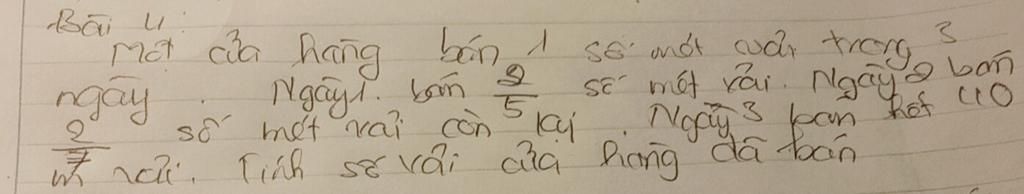 Bài 4:
Một cửa hàng bán 1 số mét vải trong 3
ngày. Ngày 1. bán 2/5 số mét vải. Ngày 2 bán
2/7 số mét vải còn lại. Ngày 3 bán hết 40
m vải. Tính số vải cửa hàng đã bán